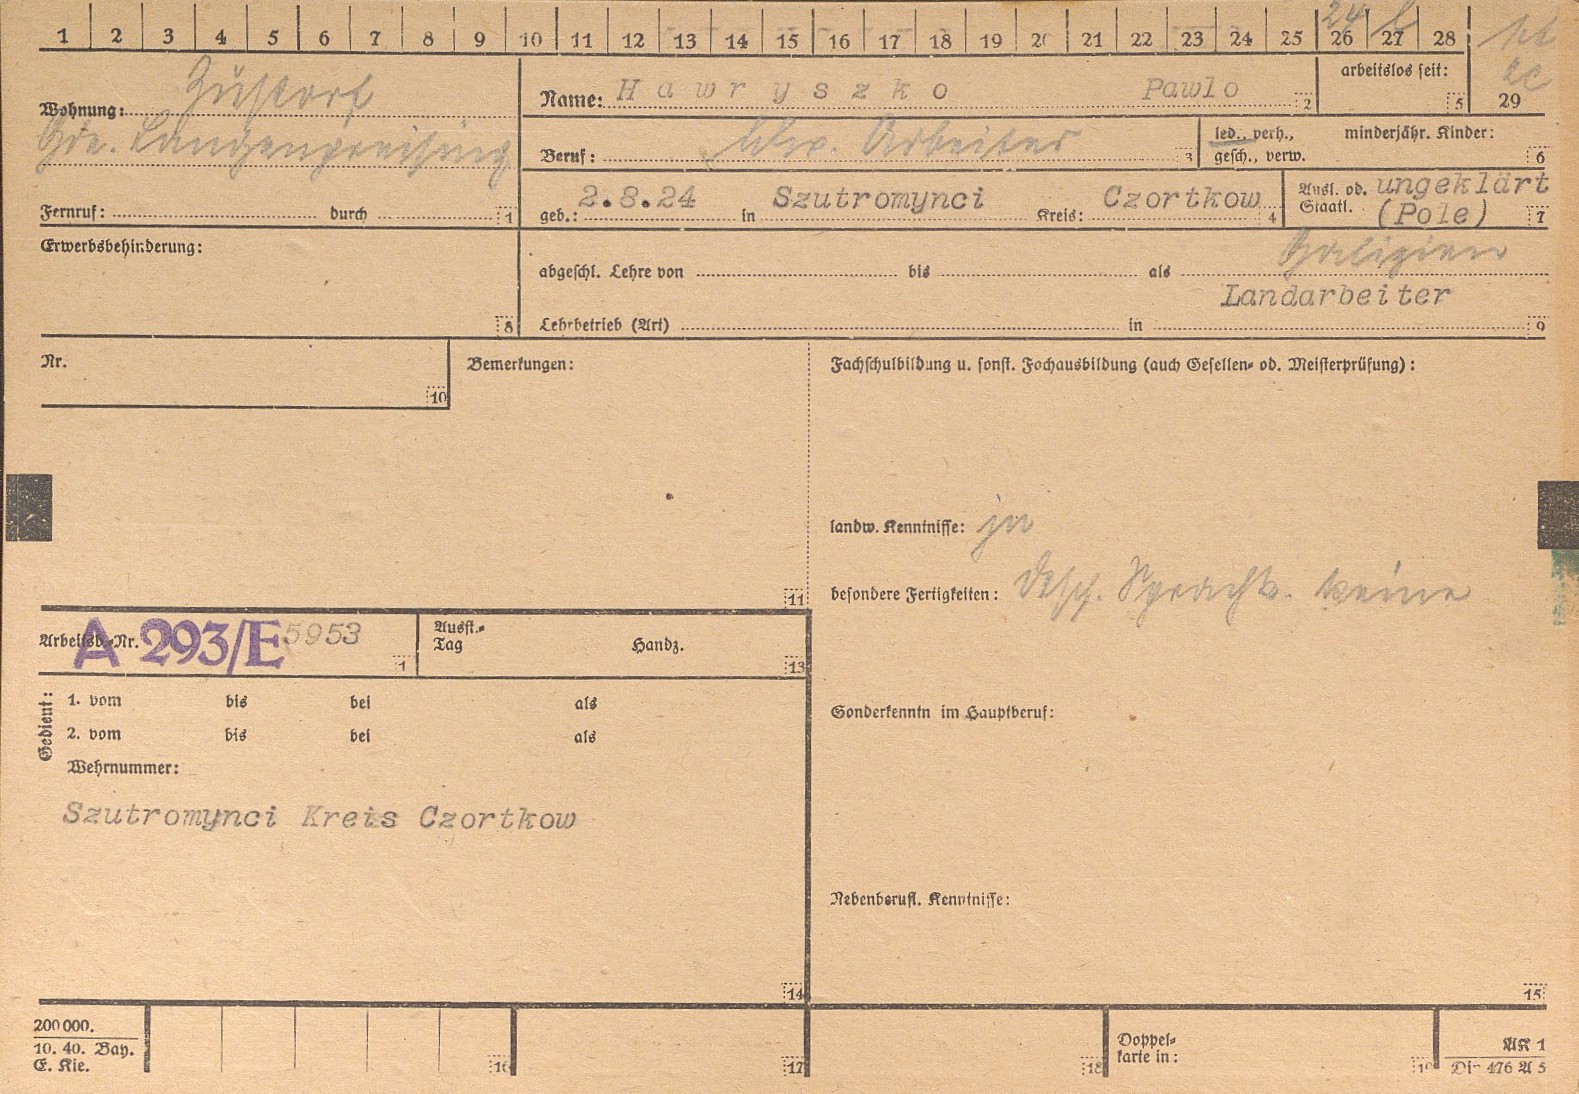 1 2 3 4 5 6 7 8 9 10 11 12 13 14 15 16 17 18 19 20 21 22 23 24 25 26 27 28
24
29
Wohnung: Zustorf
Gde. Langenpreising
Fernruf: durch 1
Name: Hawryszko Pawlo 2
arbeitslos seit: 5
Beruf: ldw. Arbeiter 3
led., verh., gesch., verw.
minderjähr. Kinder: 6
geb.: 2.8.24 in Szutromynci Kreis: Czortkow 4
Ausl. od. Staatl. ungeklärt (Pole) 7
Erwerbsbehinderung: 8
Galizien
abgeschl. Lehre von bis als
Landarbeiter
Lehrbetrieb (Art) in 9
Nr. 10
Bemerkungen: 11
Fachschulbildung u. sonst. Fachausbildung (auch Gesellen- od. Meisterprüfung):
landw. Kenntnisse: ja
besondere Fertigkeiten: dtsch. Sprachk. keine
Arbeitsb.-Nr. A 293/E 5953 1
Ausst.-Tag Handz. 13
Gedient:
1. vom bis bei als
2. vom bis bei als
Wehrnummer:
Szutromynci Kreis Czortkow
14
Sonderkenntn im Hauptberuf:
Nebenberufl. Kenntnisse:
15
200 000.
10. 40. Bay.
E. Kie.
16 17 18
Doppel-
karte in:
19
AK 1
Din 476 A 5